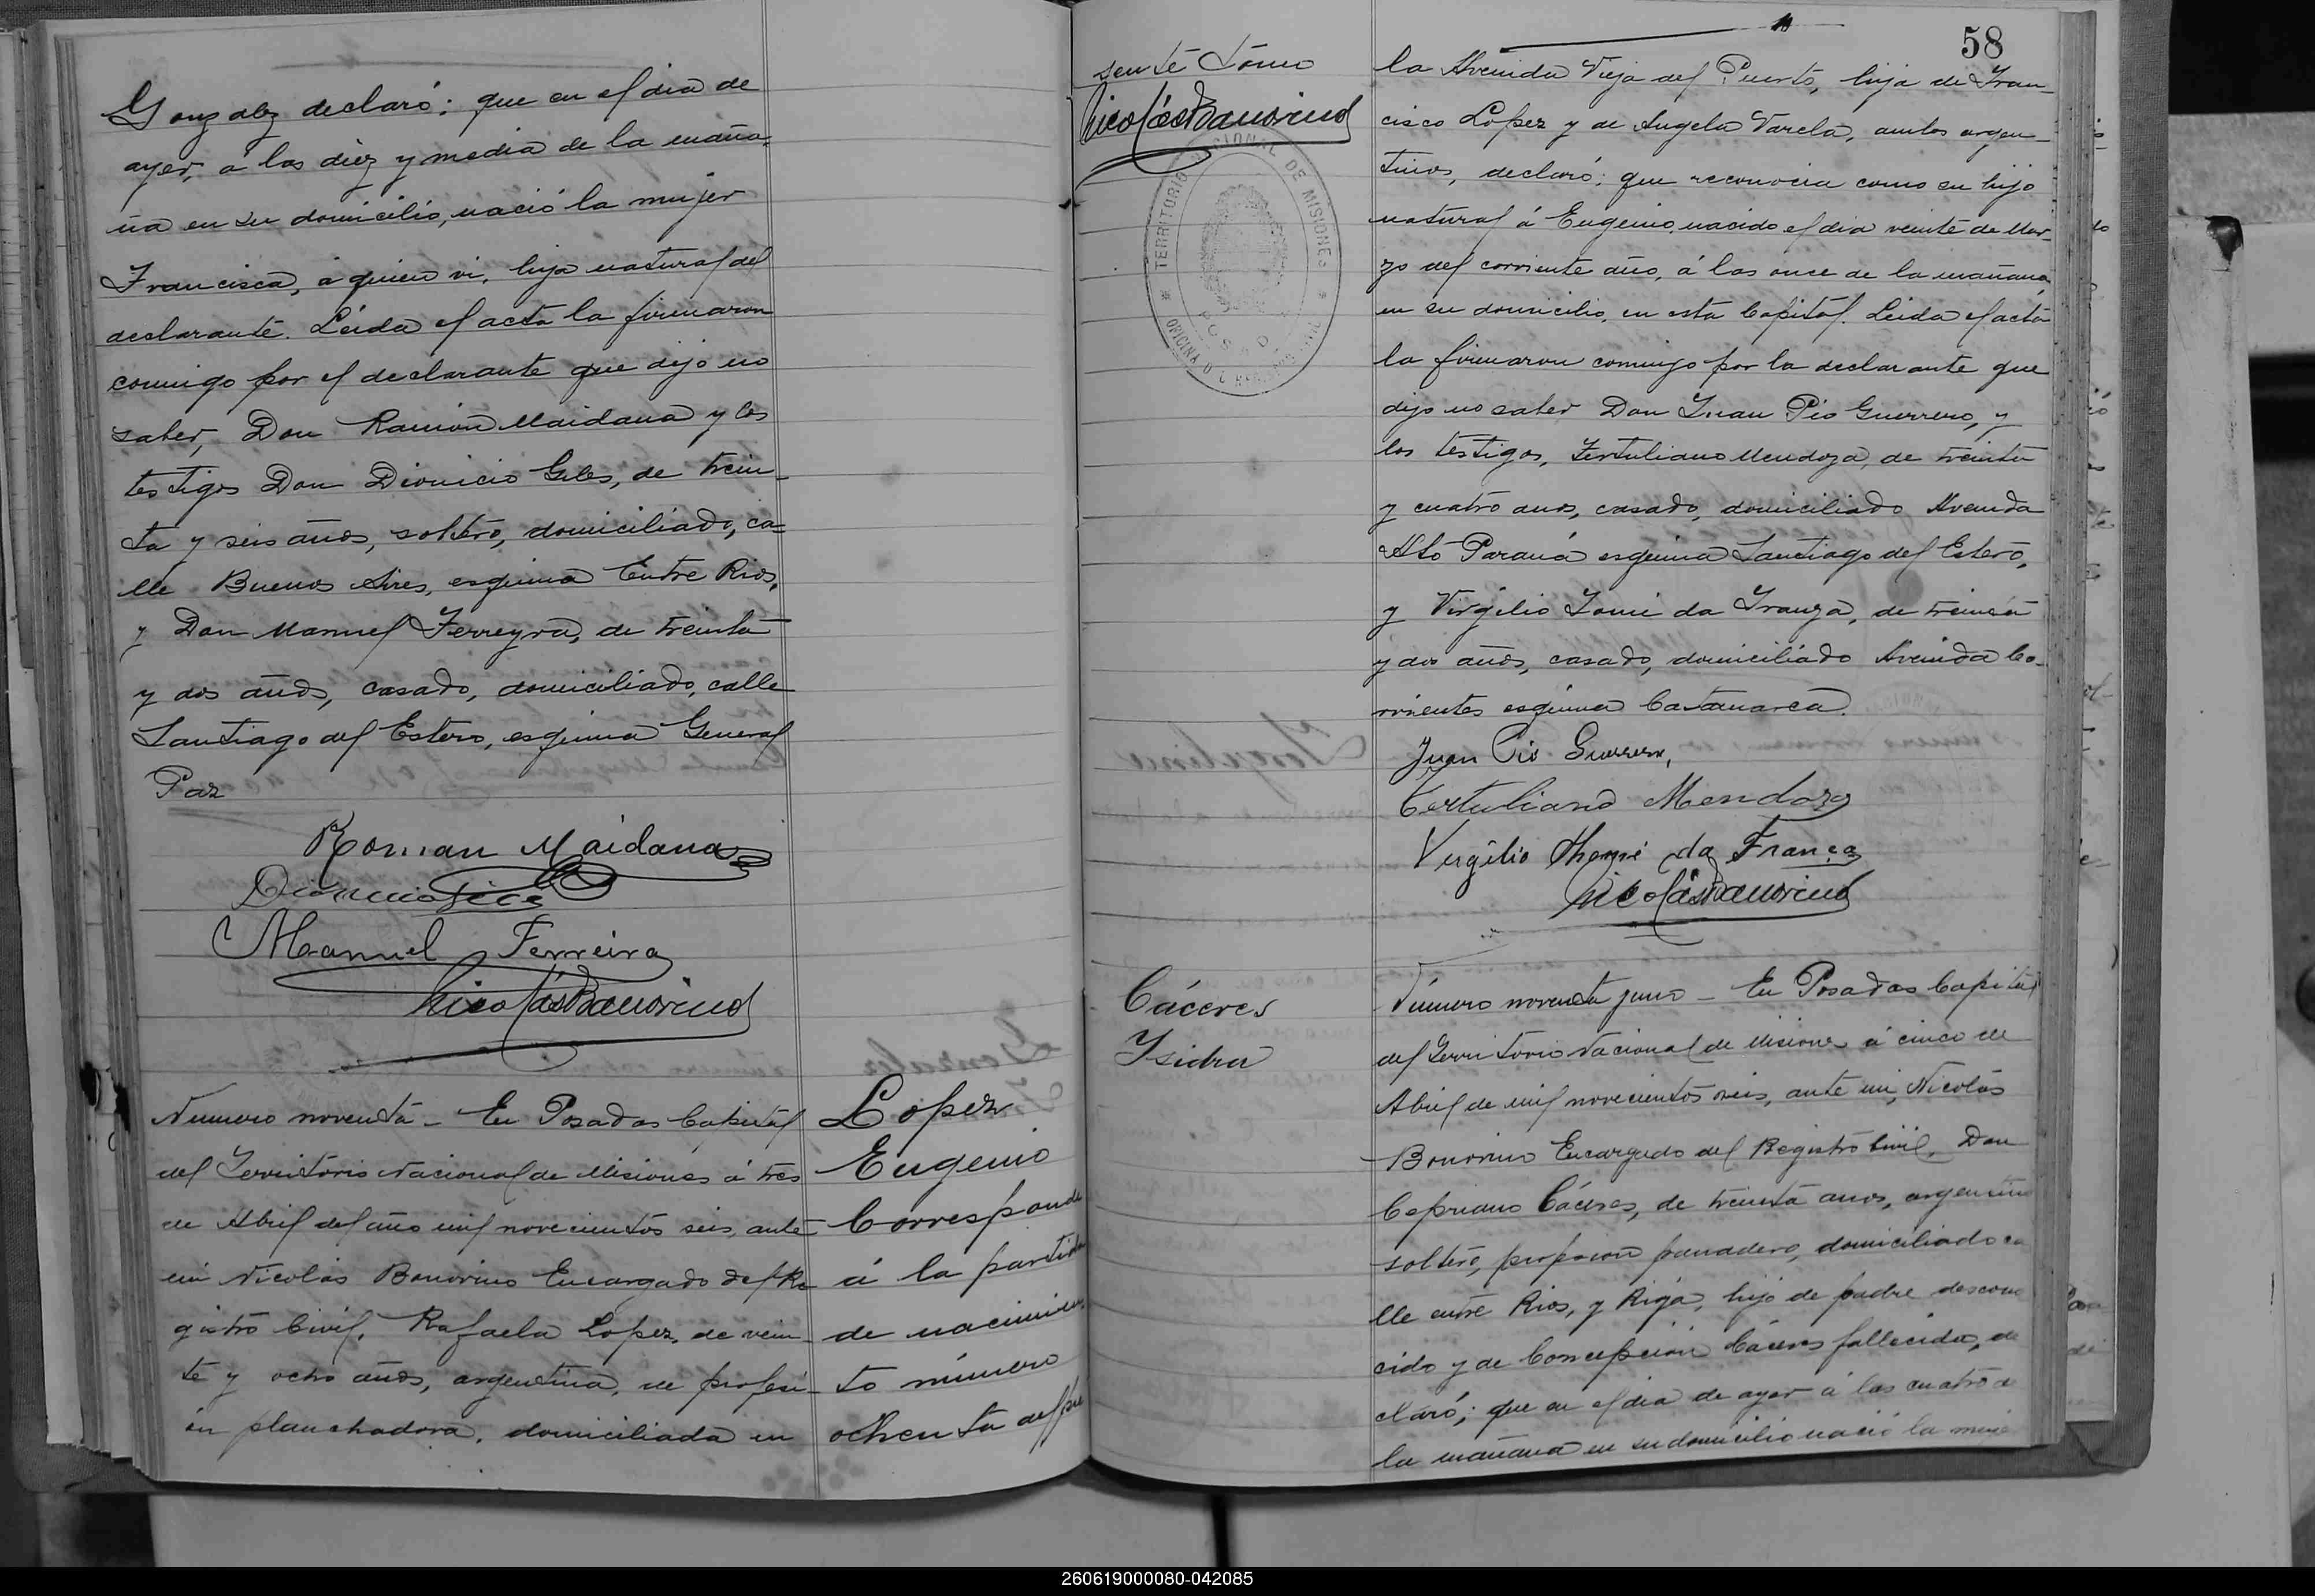 Gonzalez declaró: que en el dia de
ayer, á las diez y media de la maña-
na en su domicilio, nació la mujer
Francisca, á quien vi, hija natural del
declarante. Leida el acta la firmaron
conmigo por el declarante que dijo no
saber, Don Ramon Maidana y los
testigos Don Dionicio Giles, de trein-
ta y seis años, soltero, domiciliado, ca-
lle Buenos Aires, esquina Entre Rios,
y Don Manuel Ferreyra, de treinta
y dos años, casado, domiciliado, calle
Santiago del Estero, esquina General
Paz
Roman Maidana
Manuel Ferreira
Nicolás Bonorino
Numero noventa - En Posadas Capital
del Territorio Nacional de Misiones á tres
de Abril del año mil novecientos seis, ante
mi Nicolás Bonorino Encargado del Re-
gistro Civil, Rafaela Lopez, de vein-
te y ocho años, argentina, de profesi-
ón planchadora, domiciliada en
Lopez
Eugenio
Corresponde
á la partida
de nacimien-
to número
ochenta del pre
58
sente Tomo
Nicolás Bonorino
TERRITORIO NACIONAL DE MISIONES
POSADAS
la Avenida Vieja del Puerto, hija de Fran-
cisco López y de Angela Varela, ambos argen-
tinos, declaró: que reconocia como su hijo
natural á Eugenio, nacido el dia veinte de Mar-
zo del corriente año, á las once de la mañana,
en su domicilio, en esta Capital. Leida el acta
la firmaron conmigo por la declarante que
dijo no saber Don Juan Pio Guerrero, y
los testigos, Tertuliano Mendoza, de treinta
y cuatro anos, casado, domiciliado Avenida
Alto Paraná esquina Santiago del Estero,
y Virgilio Tomé da Franza, de treinta
y dos años, casado, domiciliado Avenida Co-
rrientes esquina Catamarca.
Juan Pio Guerrero,
Tertuliano Mendoza
Virgilio Thomé da França
Nicolás Bonorino
Cáceres
Isidra
Número noventa y uno - En Posadas Capital
del Territorio Nacional de Misiones á cinco de
Abril de mil novecientos seis, ante mi, Nicolás
Bonorino Encargado del Registro Civil, Don
Cepriano Cáceres, de treinta anos, argentino
soltero, profesion panadero, domiciliado ca
lle entre Rios, y Rioja, hijo de padre descono
cido y de Concepción Cáceres fallecida, de
claró; que en el dia de ayer á las cuatro de
la mañana en su domicilio nació la muje
260619000080-042085